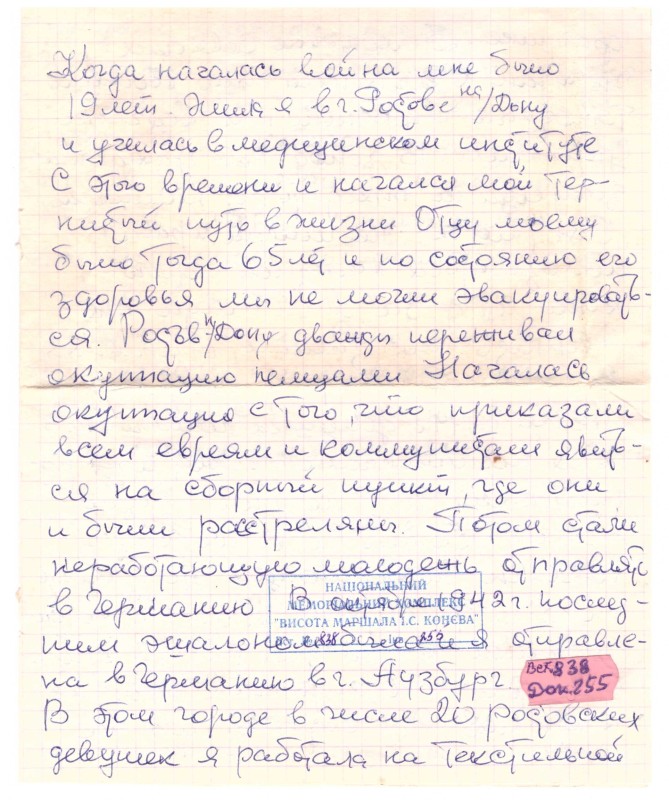 Когда началась война мне было
19 лет. Жила я в г. Ростове на/Дону
и училась в медицинском институте
С этого времени и начался мой тер-
нистый путь в жизни Отцу моему
было тогда 65 лет и по состоянию его
здоровья мы не могли эвакуировать-
ся. Ростов н/Дону дважды переживал
оккупацию немцами Началась
оккупацио с того, что приказали
всем евреям и коммунистам явить-
ся на сборный пункт, где они
и были расстреляны. Потом стали
неработающую молодежь отправлять
в Германию В 1942 г. послед-
ним эшалоном была и я отправле-
на в Германию в г. Аузбург.
В этом городе в числе 20 ростовских
девушек я работала на текстильной
НАЦІОНАЛЬНИЙ
МЕМОРІАЛЬНИЙ КОМПЛЕКС
"ВИСОТА МАРШАЛА І.С. КОНЄВА"
838 255
Вст. 838
Док. 255